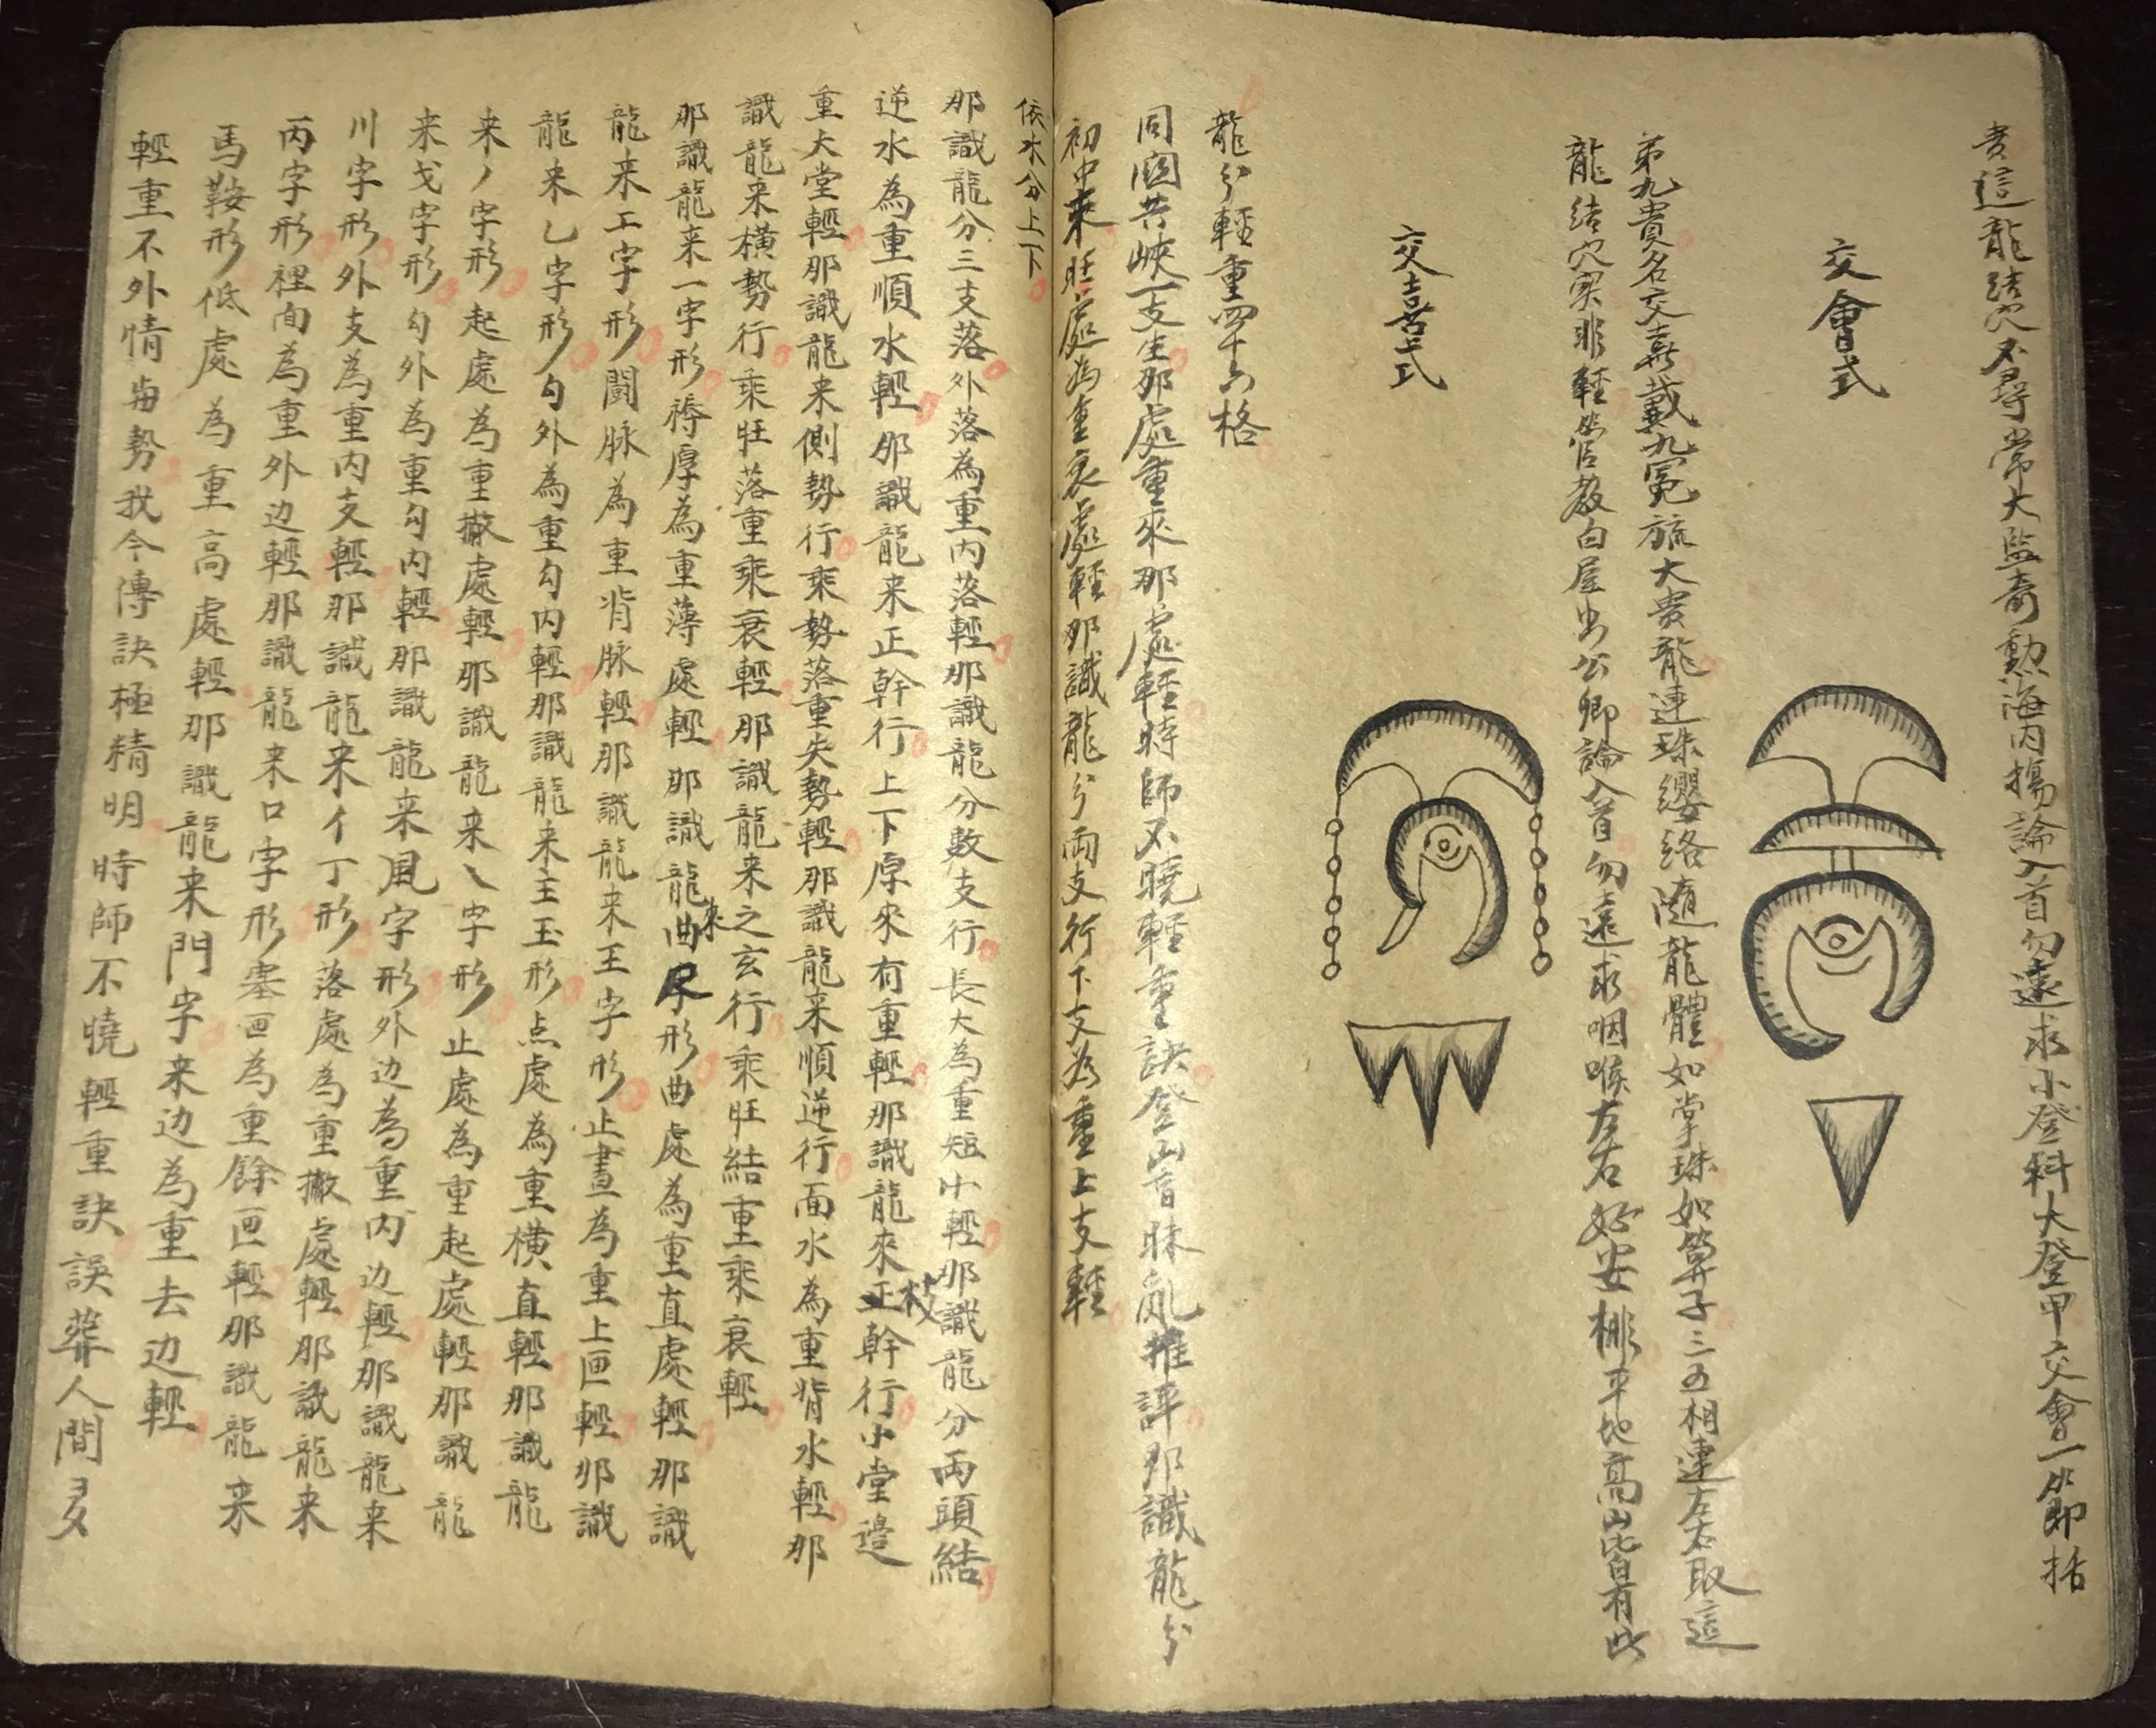 貴這龍結穴不尋常大監奇勲海内揚論入首勿遠求小登科大登甲交會一節括
交會式
第九貴名交喜戴九冕旒大貴龍連珠纓絡随龍體如掌珠如算子三五相連左右取這
龍結穴実非輕官教白屋出公卿論入首勿遠求咽喉左右好安排平地高山皆有此
交喜式
龍分輕重四十六格
同國共峽一支生那處重來那處輕時師不曉輕重訣登山盲昧亂推評那識龍分
初中乘旺處為重衰處輕那識龍分両支行下支為重上支輕
依水分上下
那識龍分三支落外落為重内落輕那識龍分数支行長大為重短小輕那識龍分両頭結
逆水為重順水輕那識龍来正幹行上下原來有重輕那識龍來正枝幹行小堂邉
重大堂輕那識龍来側勢行乘勢落重失勢輕那識龍来順逆行面水為重背水輕那
識龍来横勢行乘旺落重乘衰輕那識龍来之玄行乘旺結重乘衰輕
那識龍来一字形褥厚為重薄處輕那識龍來曲尺形曲處為重直處輕那識
龍来工字形闘脉為重背脉輕那識龍来王字形止畫為重上匣輕那識
龍来乙字形勾外為重勾内輕那識龍来主玉形点處為重横直輕那識龍
来丿字形起處為重撇處輕那識龍来乀字形止處為重起處輕那識龍
来戈字形勾外為重勾内輕那識龍来風字形外边為重内边輕那識龍来
川字形外支為重内支輕那識龍来亻丁形落處為重撇處輕那識龍来
丙字形裡面為重外边輕那識龍来口字形塞匣為重餘匣輕那識龍来
馬鞍形低處為重高處輕那識龍来門字来边為重去边輕
輕重不外情與勢我今傳訣極精明時師不曉輕重訣誤葬人間多